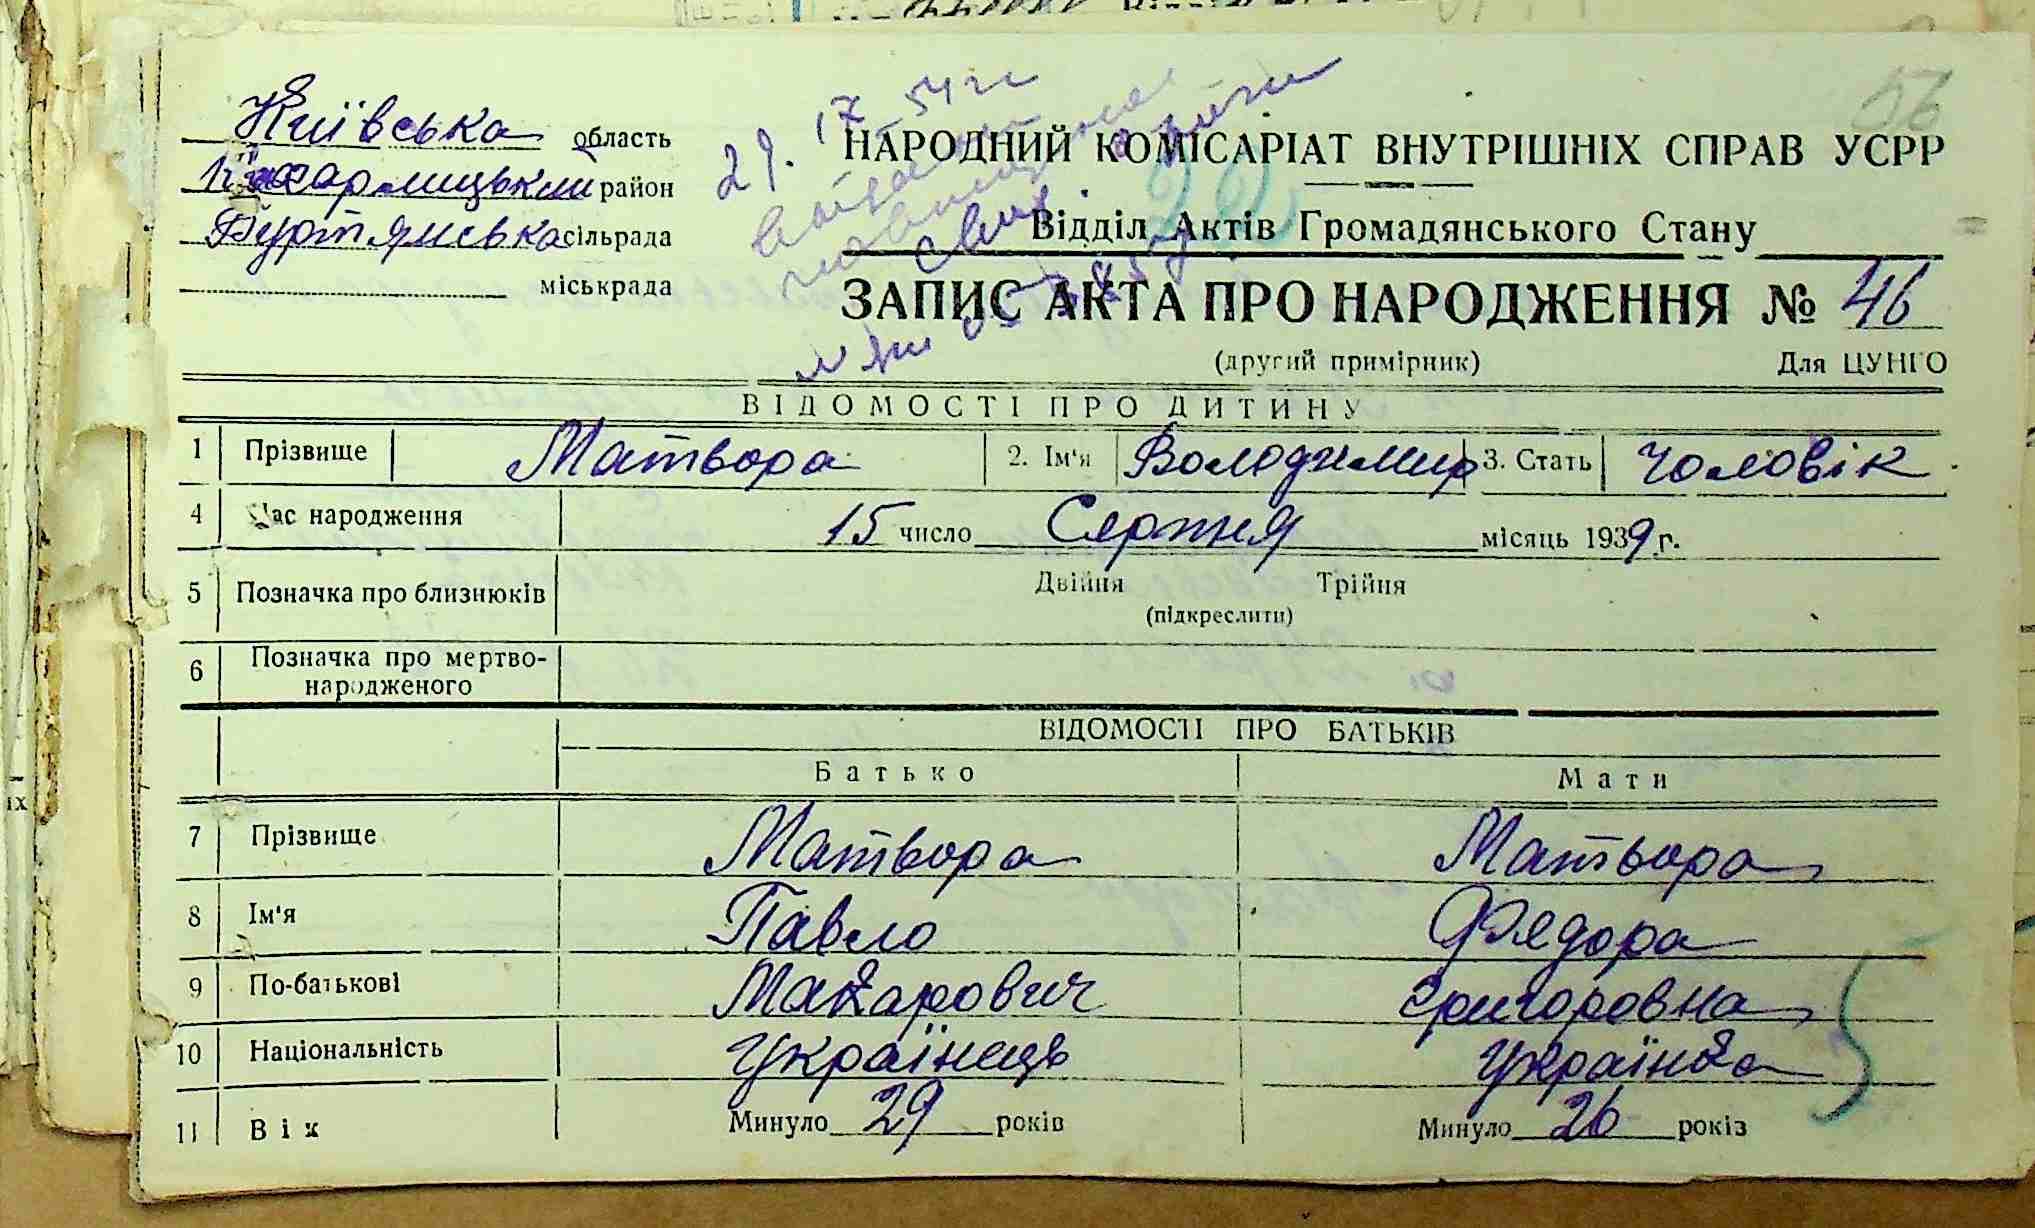 Київська область
Кагарлицький район
Буртянська сільрада
міськрада
56
29. IX 54 г.
НАРОДНИЙ КОМІСАРІАТ ВНУТРІШНІХ СПРАВ УСРР
Відділ Актів Громадянського Стану
ЗАПИС АКТА ПРО НАРОДЖЕННЯ № 46
(другий примірник) Для ЦУНГО
ВІДОМОСТІ ПРО ДИТИНУ
1 Прізвище Матвора 2. Ім'я Володимир 3. Стать чоловік
4 Час народження 15 число Серпня місяць 1939 г.
5 Позначка про близнюків Двійня Трійня
(підкреслити)
6 Позначка про мертво-
народженого
ВІДОМОСТІ ПРО БАТЬКІВ
Батько Мати
7 Прізвище Матвора Матвора
8 Ім'я Павло Федора
9 По-батькові Макарович Григоровна
10 Національність Українець Українка
11 Вік Минуло 29 років Минуло 26 років